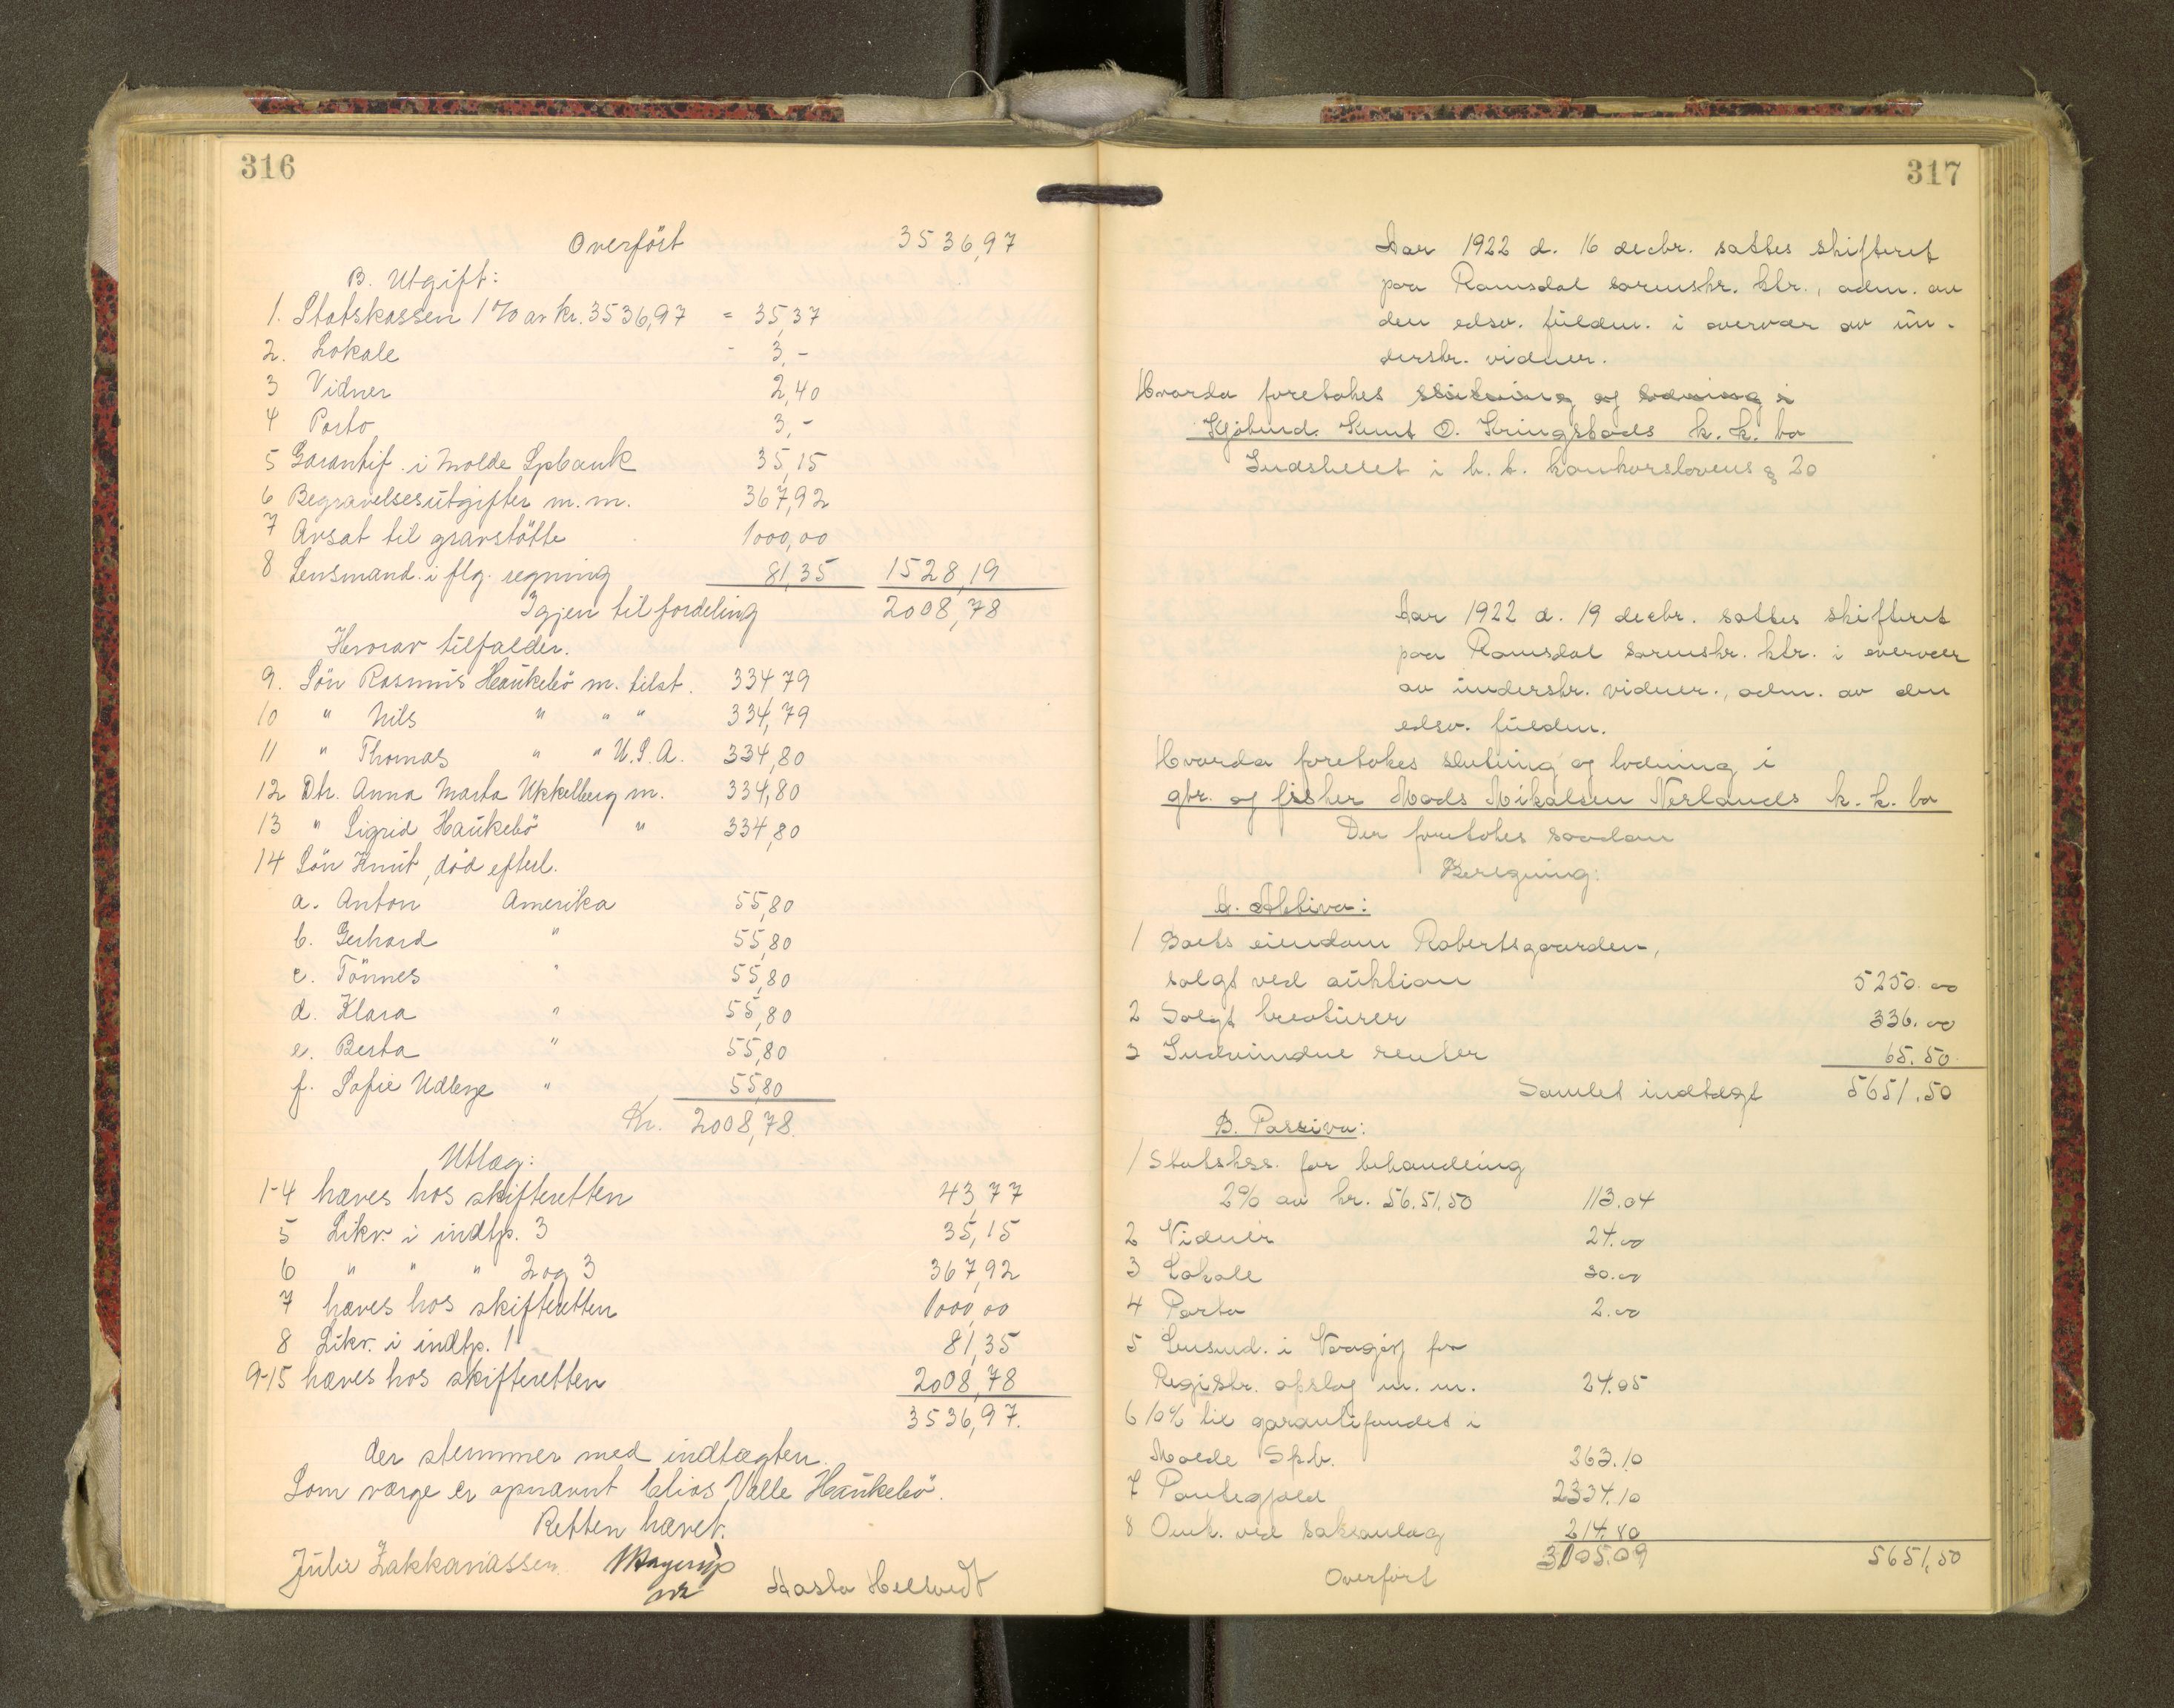 316
Overfört 3536,97
B. Utgift:
1. Statskassen 1% av kr. 3536,97 = 35,37
2. Lokale - 3,-
3 Vidner 2,40
4 Porto 3,-
5 Garantif. i Molde Spbank 35,15
6 Begravelsesutgifter m. m. 367,92
7 Avsat til gravstötte 1000,00
8 Lensmand. i flg. regning 81,35 1528,19
Igjen til fordeling 2008,78
Herav tilfalder.
9. Sön Rasmus Haukebö m. tilst. 334 79
10 " Nils " " " 334,79
11 " Thomas " " U.S.A. 334,80
12 Dtr. Anna Marta Ukkelberg m. 334,80
13 " Sigrid Haukebö " 334,80
14 Sön Knut, död efterl.
a. Anton Amerika 55,80
b. Gerhard " 55,80
c. Tönnes " 55,80
d. Klara " 55,80
e. Berta " 55,80
f. Sofie " 55,80
Kr. 2008,78.
Utlæg:
1-4 hæves hos skifteretten 43,77
5 Likv. i indtp. 3 35,15
6 " " " 2 og 3 367,92
7 hæves hos skifteretten 1000,00
8 Likv. i indtp. 1 81,35
9-15 hæves hos skifteretten 2008,78
3536,97.
der stemmer med indtægten.
Som værge er opnævnt Elias Valle Haukebö.
Retten hævet.
Julie Zakkariassen Hasla Hellvedt
317
Aar 1922 d. 16 decbr. sattes skifteret
paa Romsdal sorenskr. ktr., adm. av
den edsv. fuldm. i overvær av un-
derskr. vidner.
Hvorda foretokes slutning og lodning i
Kjöbmd. Knut O. Kringstads k. k. bo
Indstillet i h. t. konkurslovens § 20
Aar 1922 d. 19 decbr. sattes skifteret
paa Romsdal sorenskr. ktr. i overvær
av underskr. vidner., adm. av den
edsv. fuldm.
Hvorda foretokes slutning og lodning i
gbr. og fisker Mads Mikalsen Nerlands k. k. bo
Der foretokes saadan
Beregning:
A. Aktiva:
1 Boets eiendom Robertsgaarden,
solgt ved auktion 5250.00
2 Solgt kreaturer 336.00
3 Indvundne renter 65.50
Samlet indtægt 5651.50
B. Passiva:
1 Statskss. for behandling
2% av kr. 56.51.50 113.04
2 Vidner 24.00
3 Lokale 30.00
4 Porto 2.00
5 Lensmd. i for
Registr. opslag m. m. 24.05
6 10% til garantifondet i
Molde Spb. 363.10
7 Pantegjæld 2334.10
8 Omk. ved saksanlæg 214.80
3105.09 5651,50
Overført